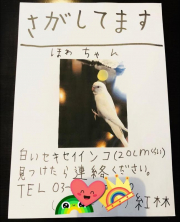 さがしてます
ほわちゃん
白いセキセイインコ(20cmくらい)
見つけたら連絡ください。
TEL 03-
紅林